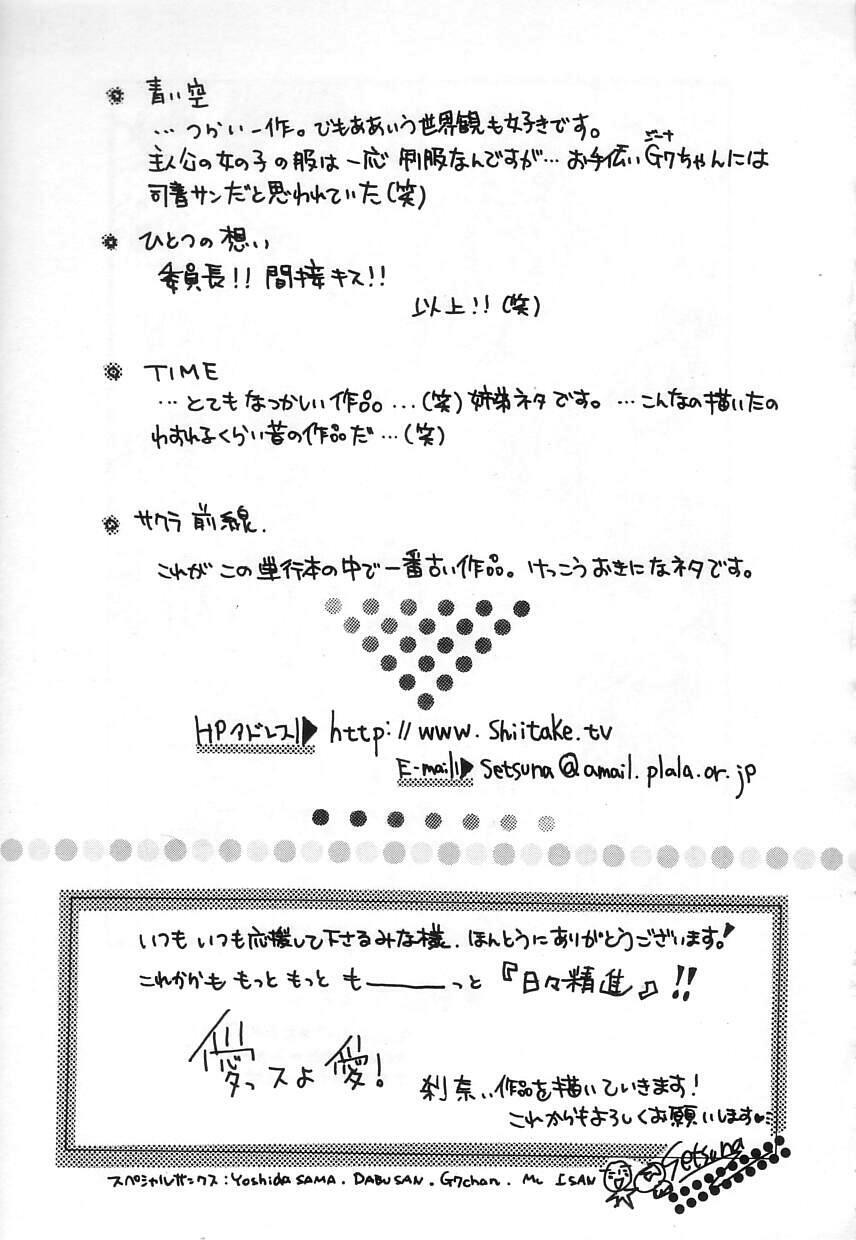 青い空
…つらい一作。でもああいう世界観も好きです。
ジーナ
主人公の女の子の服は一応 制服なんですが…お手伝いG7ちゃんには
司書サンだと思われていた(笑)
ひとつの想い
委員長!! 間接キス!!
以上!! (笑)
TIME
…とてもなつかしい作品…(笑)姉弟ネタです。…こんなの描いたの
わすれるくらい昔の作品だ…(笑)
サクラ前線.
これが この単行本の中で一番古い作品。けっこうおきになネタです。
HPアドレス http://www.shiitake.tv
E-mail setsuna@amail.plala.or.jp
いつも いつも応援して下さるみな様、ほんとうにありがとうございます!
これからも もっと もっと も――――っと 『日々精進』!!
愛っスよ 愛!
刹奈、、作品を描いていきます!
これからもよろしくお願いします♥
Setsuna
スペシャルサンクス:Yoshida SAMA. DABU SAN. G7chan. Mc ISAN